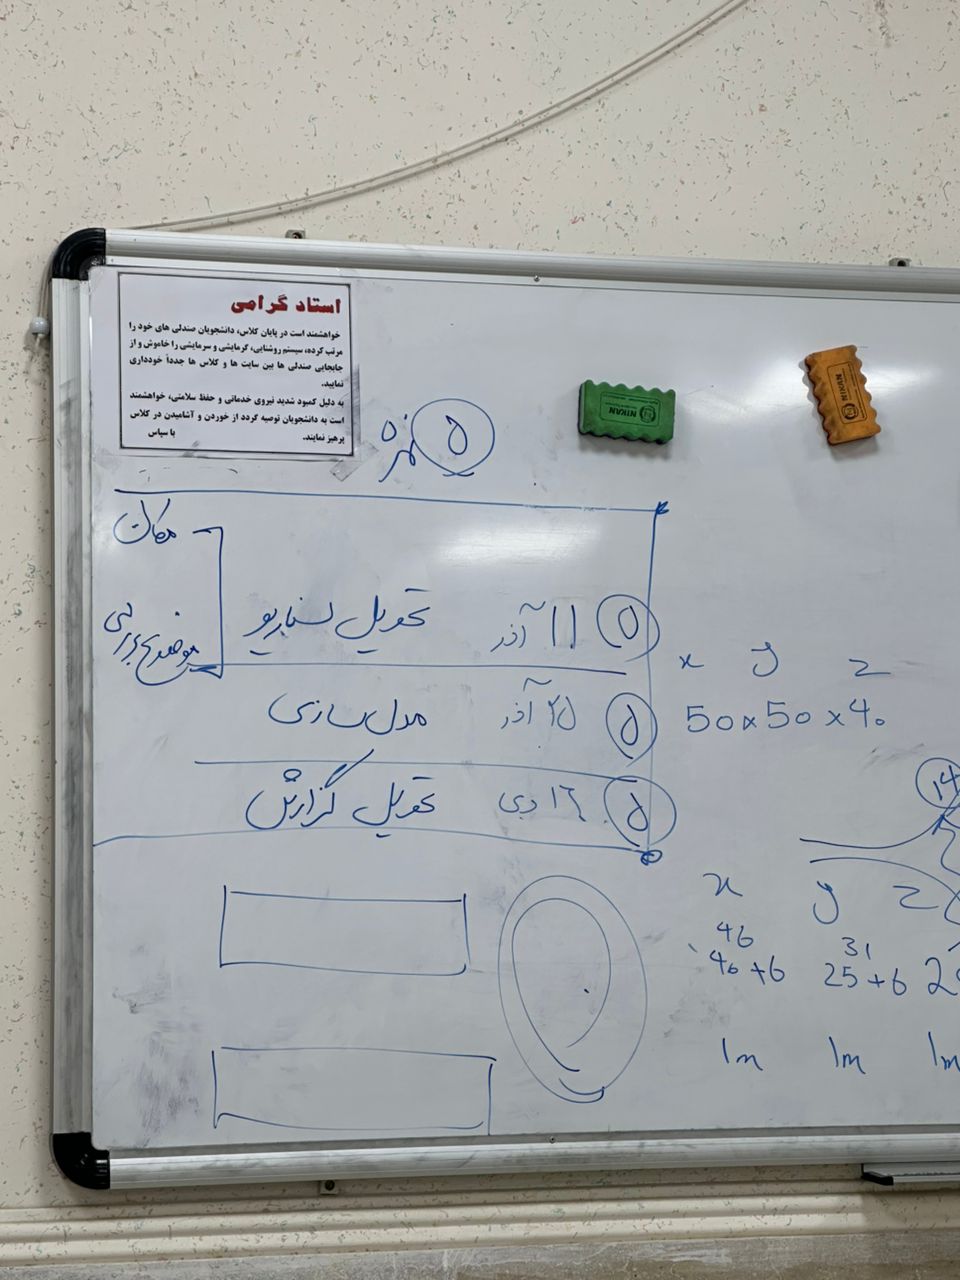 استاد گرامی
خواهشمند است در پایان کلاس، دانشجویان صندلی های خود را
مرتب کرده، سیستم روشنایی، گرمایشی و سرمایشی را خاموش و از
جابجایی صندلی ها بین سایت ها و کلاس ها جدداً خودداری
نمایید.
به دلیل کمبود شدید نیروی خدماتی و حفظ سلامتی، خواهشمند
است به دانشجویان توصیه گردد از خوردن و آشامیدن در کلاس
پرهیز نمایند.
با سپاس
NIKAN
NIKAN
۵ نمره
مکان
۵ ۱۱ آذر تحویل سناریو
موضوع
۵ ۲۵ آذر مدل سازی
۵ ۱۶ دی تحویل گزارش
x y z
50x50x40
14
x y z
46 31
40+6 25+6
1m 1m 1m